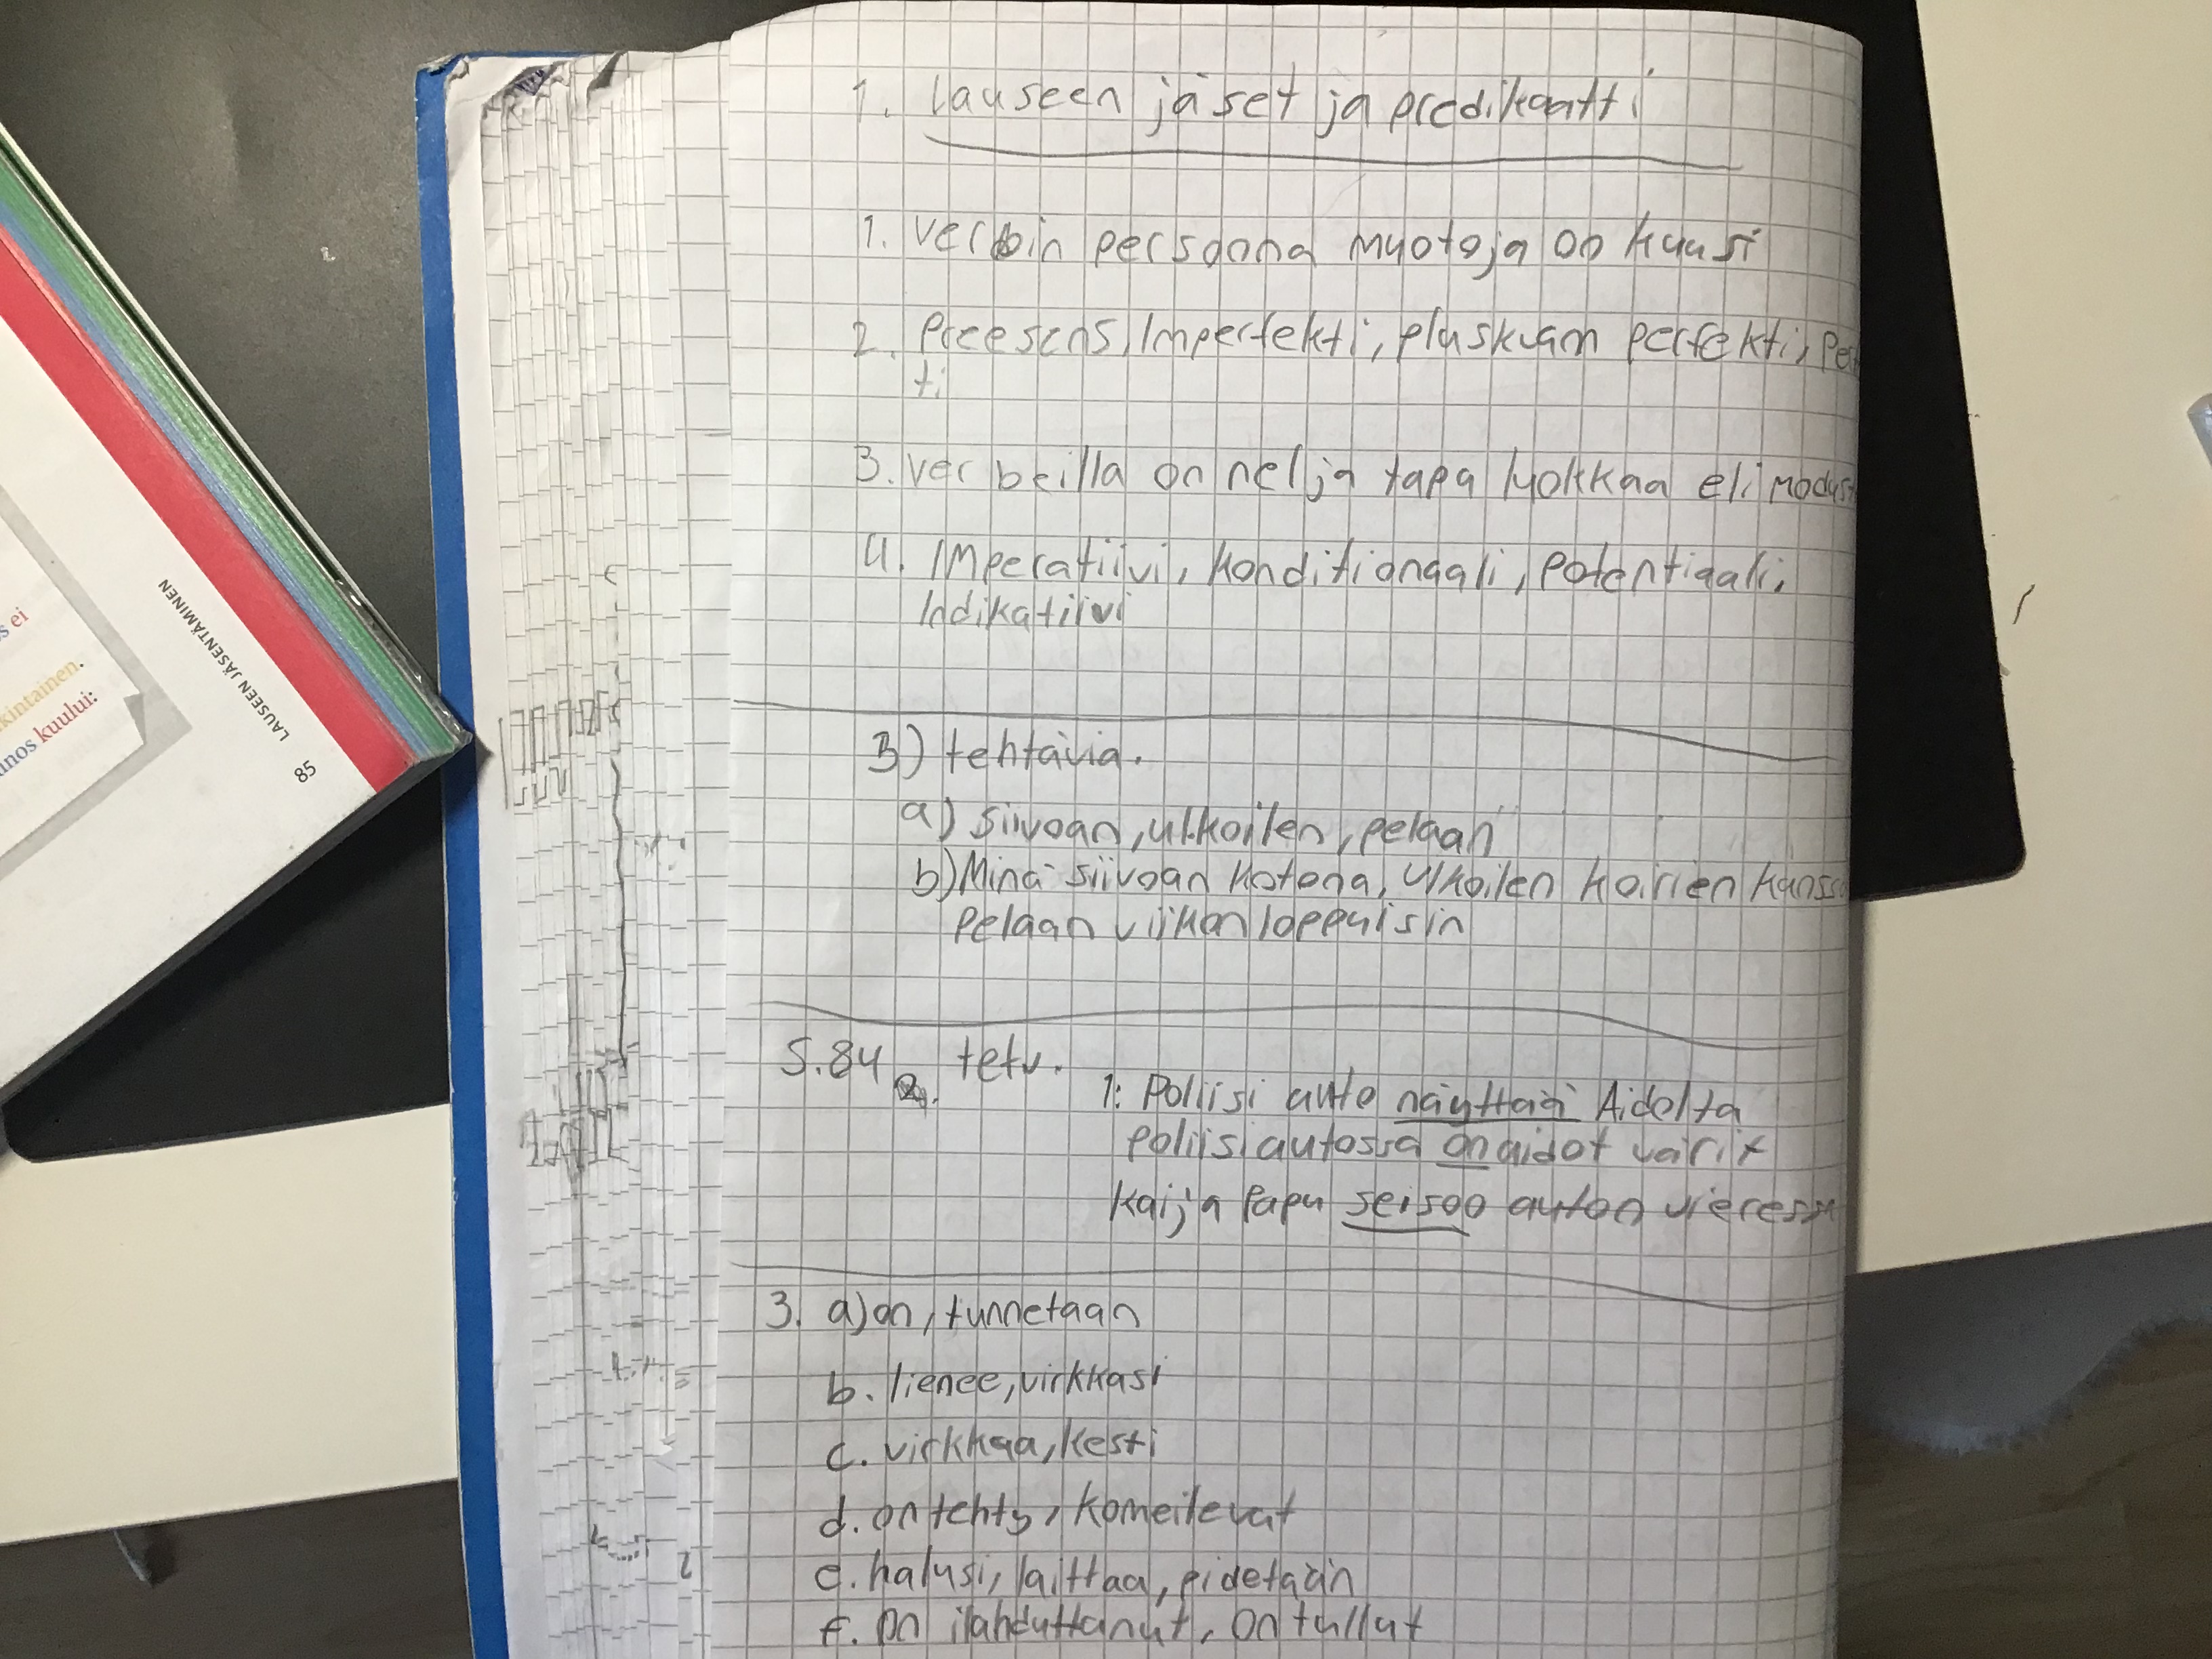 1. Lauseen jäset ja predikaatti
1. verbin persoona muotoja on kuusi
2. Preesens, Imperfekti, pluskvam perfekti, per
ti
3. verbeilla on neljä tapa luokkaa eli modus
4. Imperatiivi, konditionaali, potentiaali,
Indikatiivi
3) tehtäviä.
a) siivoan, ulkoilen, pelaan
b) Minä siivoan kotona, ulkoilen koirien kanssa
pelaan viikonloppuisin
S.84 tetv.
2.
1: Poliisi auto näyttää Aidolta
poliisiautossa on aidot värit
kaija Papu seisoo auton vieressä
3. a) on, tunnetaan
b. lienee, virkkasi
c. virkkaa, kesti
d. on tehty, komeilevat
e. halusi, laittaa, pidetään
f. on ilahduttanut, on tullut
s ei
kintainen.
nos kuului:
LAUSEEN JÄSENTÄMINEN
85